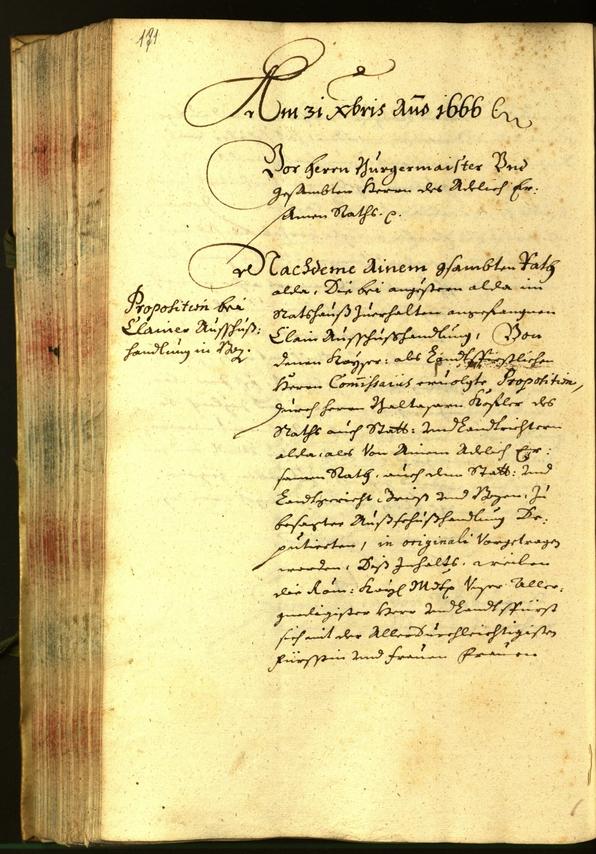 191
Am 31 Xbris Año 1666
Vor Herrn Burgermaister Vnd
gesambten Herrn des Adlich Er:
samen Raths. p.
Nachdeme Ainem gsambten Rath
alda, Die bei angestern alda im
Rathshauß Zuerhalten angefangnen
Clain Ausschußhandlung, Von
denen Kayser: als Landtsfürstlichen
Herrn Comissarius ervolgte Proposition,
durch Herrn Balthasarn Kofler des
Raths auch Statt: Vnd Landtrichtern
alda, als Von Ainem Adlich Er:
samen Rath, auch dem Statt: Vnd
Landtgericht, Grieß Vnd Bozen, Zu
besagter Außschußhandlung De:
putierten, in originali Vorgetragen
worden, Diß Inhalts, weilen
die Röm: Kayl: Mtt: Vnser Aller:
gnedigister Herr Vnd Landtsfürst
sich mit der Allerdurchleichtigisten
Fürstin Vnd Frauen Frauen
Proposition bei
Clainer Ausschuß:
handlung in Boz: